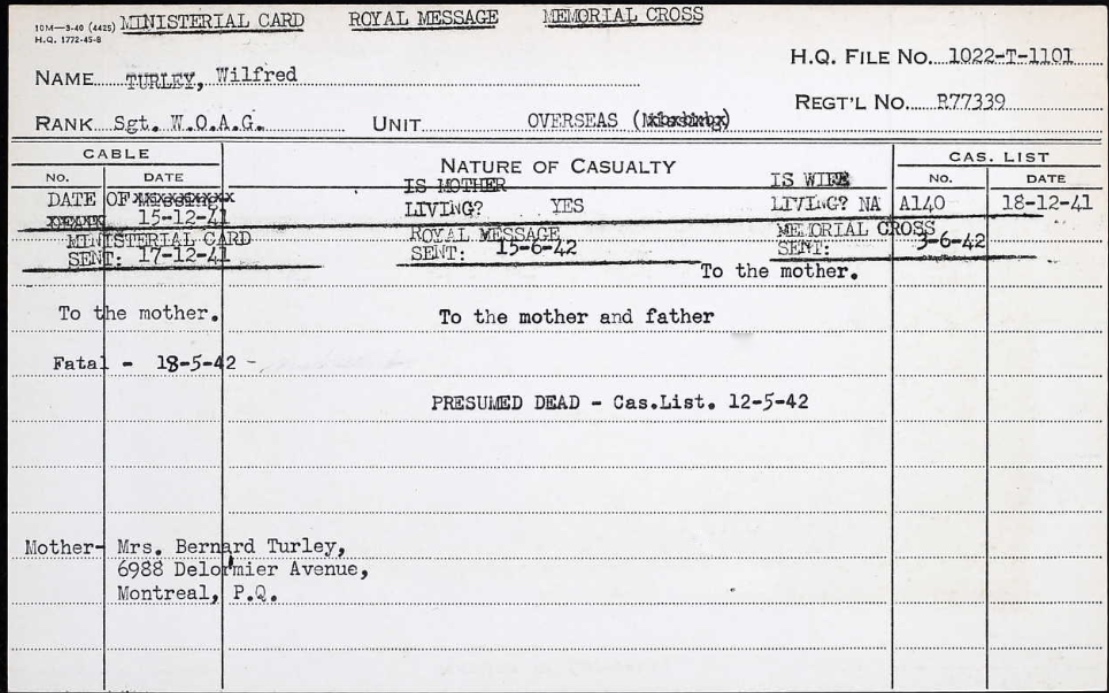 10M—3-40 (4425) MINISTERIAL CARD ROYAL MESSAGE MEMORIAL CROSS
H.Q. 1772-45-8
H.Q. FILE NO. 1022-T-1101
NAME TURLEY, Wilfred
REGT'L NO. R77339
RANK Sgt. W.O.A.G. UNIT OVERSEAS (Missing)
CABLE NATURE OF CASUALTY CAS. LIST
NO. DATE NO. DATE
IS MOTHER IS WIFE
DATE OF Missing LIVING? YES LIVING? NA A140 18-12-41
15-12-41
MINISTERIAL CARD ROYAL MESSAGE MEMORIAL CROSS
SENT: 17-12-41 SENT: 15-6-42 SENT: 3-6-42
To the mother.
To the mother. To the mother and father
Fatal - 18-5-42 -
PRESUMED DEAD - Cas.List. 12-5-42
Mother- Mrs. Bernard Turley,
6988 Delormier Avenue,
Montreal, P.Q.